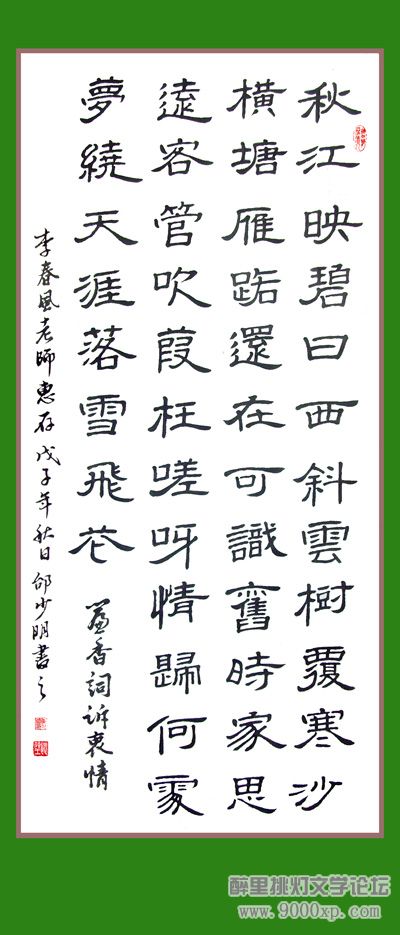 秋江映碧日西斜雲樹覆寒沙
橫塘雁跖還在可識舊時家思
遠客管吹葭枉嗟呀情歸何處
夢繞天涯落雪飛花
香詞訴衷情
李春風老師惠存戊子年秋日少明書之
醉里挑灯文学论坛
www.9000xp.com